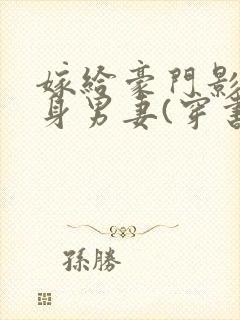 嫁給豪門影
身男妻(穿書
孫勝